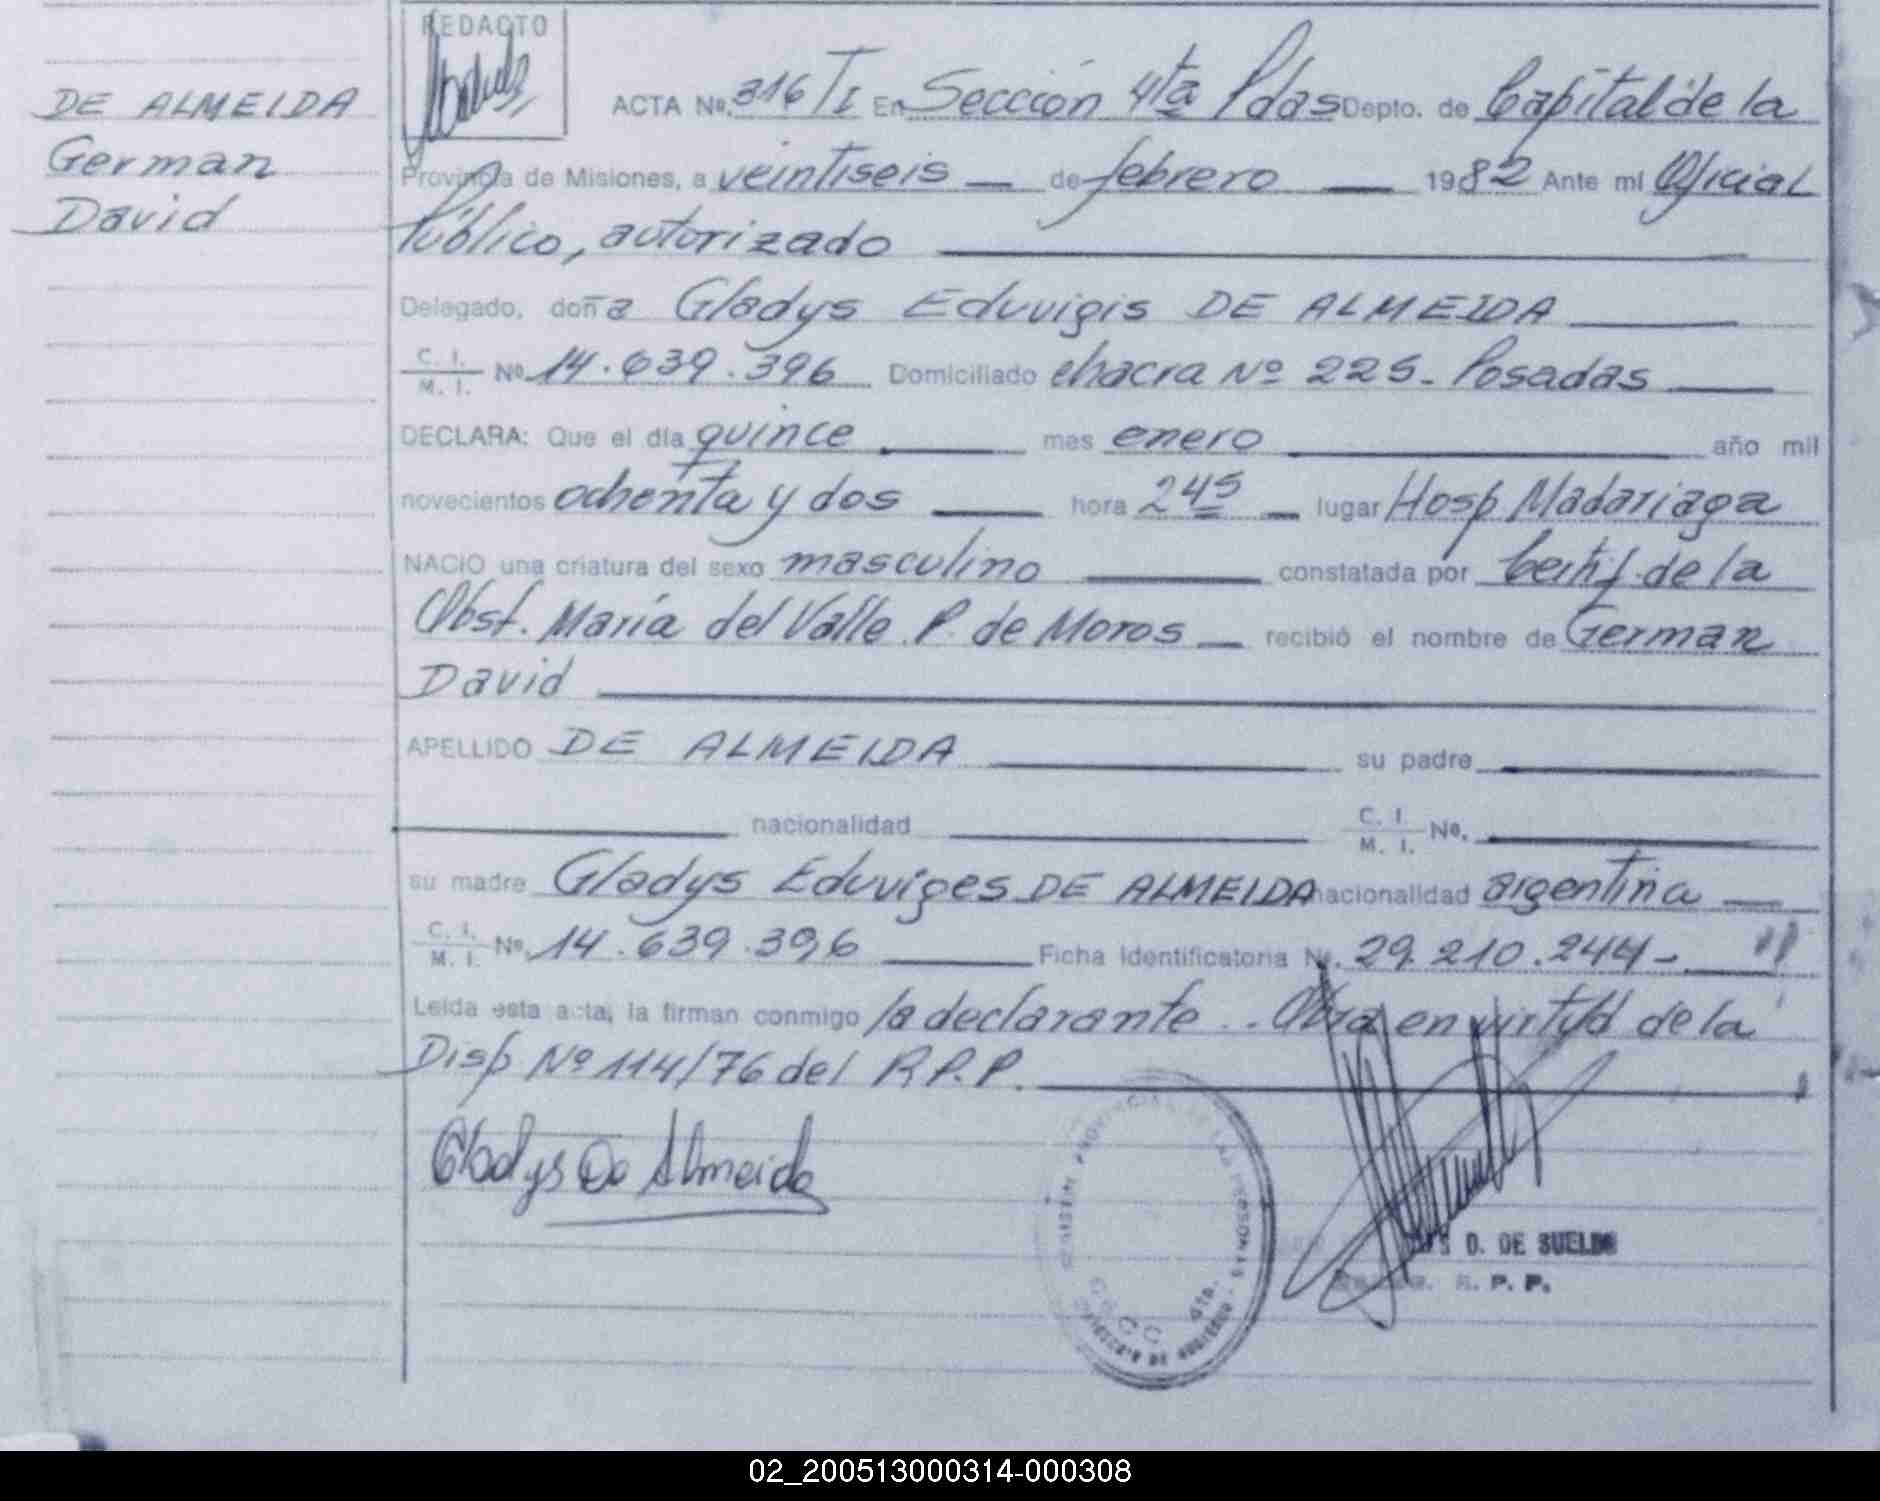 DE ALMEIDA
German
David
REDACTO
ACTA Nº. 316 TI En Sección 4ta Pdas Depto. de Capital de la
Provincia de Misiones, a veintiseis — de febrero — 1982 Ante mi Oficial
Público, autorizado
Delegado, doña Gladys Eduvigis DE ALMEIDA
C. I. / M. I. Nº. 14.639.396 Domiciliado chacra Nº 225. Posadas
DECLARA: Que el día quince mes enero año mil
novecientos ochenta y dos hora 2 45 — lugar Hosp Madariaga
NACIO una criatura del sexo masculino constatada por Certif. de la
Obst. María del Valle P. de Moros — recibió el nombre de German
David
APELLIDO DE ALMEIDA su padre
nacionalidad C. I. / M. I. Nº.
su madre Gladys Eduviges DE ALMEIDA nacionalidad argentina —
C. I. / M. I. Nº. 14.639.396 Ficha Identificatoria Nº. 29.210.244-
Leída esta acta, la firman conmigo la declarante.. Obra en virtud de la
Disp Nº 114/76 del R.P.P.
Gladys De Almeida
D. DE SUELDO
R. P. P.
02_200513000314-000308